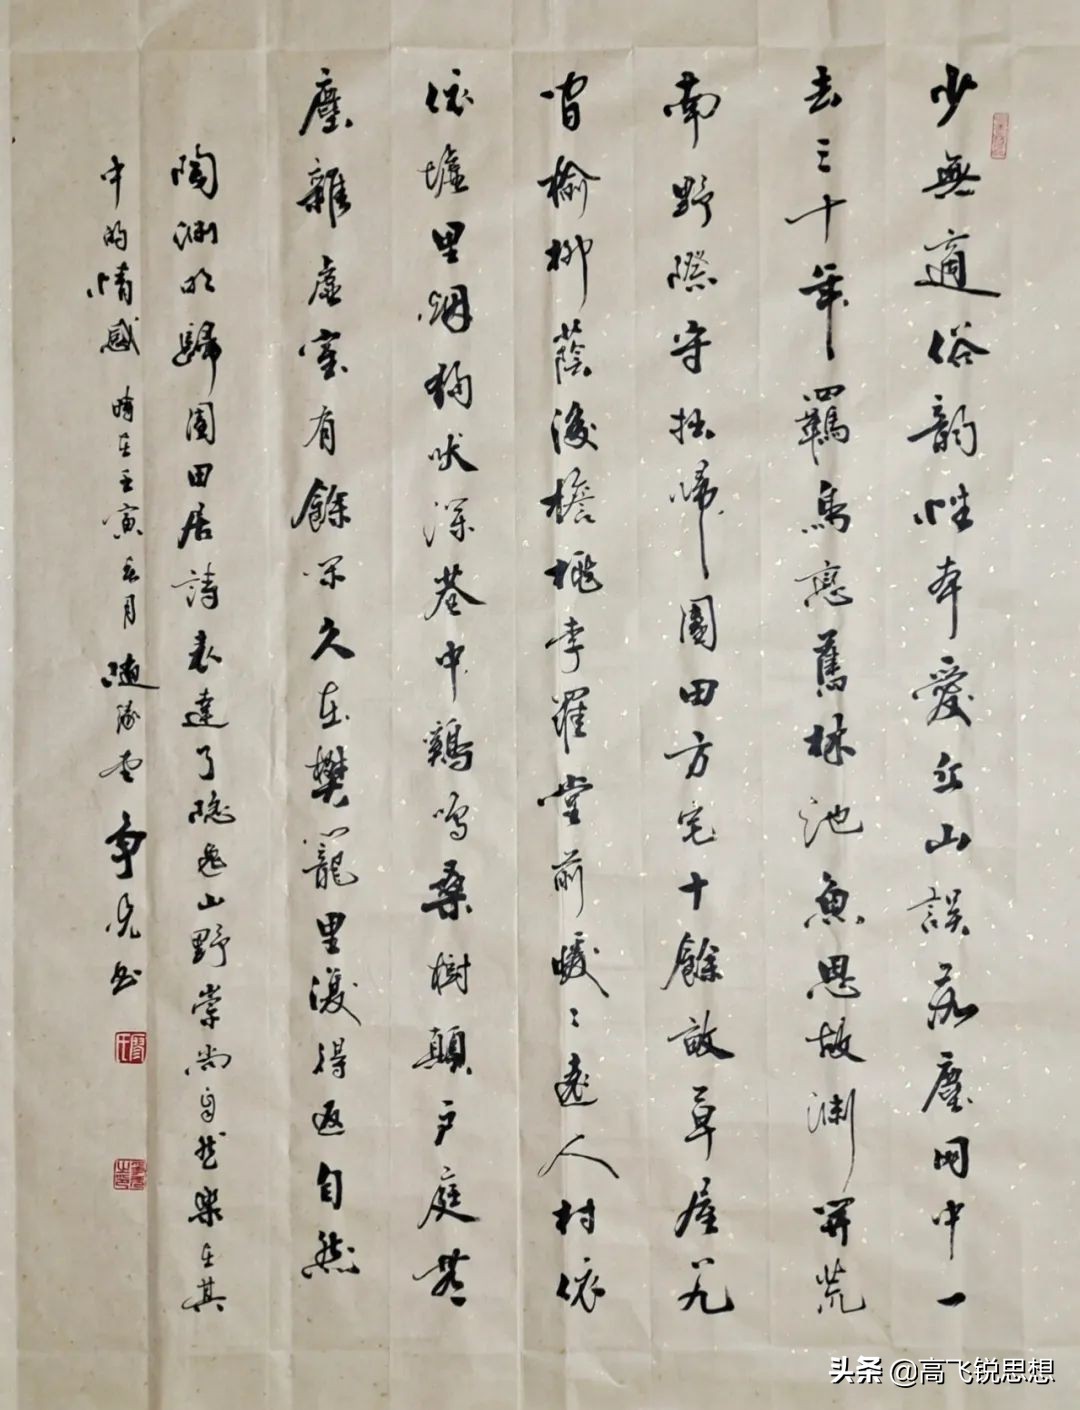 少無適俗韵性本愛丘山誤落塵网中一
去三十年羈鳥戀舊林池魚思故渊開荒
南野際守拙歸園田方宅十餘畝草屋八九
間榆柳蔭後檐桃李羅堂前暧〻遠人村依
依墟里烟狗吠深巷中鷄鳴桑樹顛户庭無
塵雜虛室有餘閑久在樊籠里復得返自然
陶渊明歸園田居詩表達了隐逸山野崇尚自然樂在其
中的情感 時在壬寅春月 随缘堂 争光书
头条 @高飞锐思想